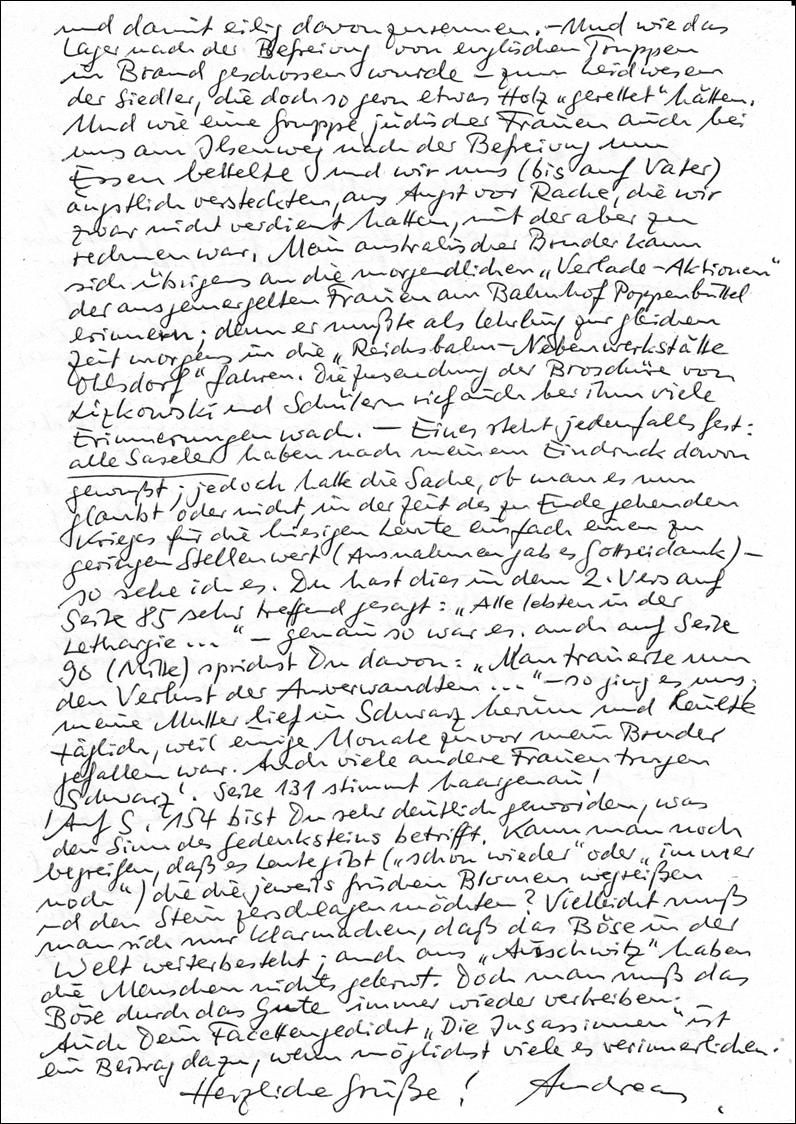 und damit eilig davonzurennen. – Und wie das
Lager nach der Befreiung von englischen Truppen
in Brand geschossen wurde – zum Leidwesen
der Siedler, die doch so gern etwas Holz „gerettet“ hätten.
Und wie eine Gruppe jüdischer Frauen auch bei
uns am Ilsenweg nach der Befreiung um
Essen bettelte und wir uns (bis auf Vater)
ängstlich versteckten, aus Angst vor Rache, die wir
zwar nicht verdient hatten, mit der aber zu
rechnen war. Mein australischer Bruder kann
sich übrigens an die morgendlichen „Verlade-Aktionen“
der ausgemergelten Frauen am Bahnhof Poppenbüttel
erinnern; denn er mußte als Lehrling zur gleichen
Zeit morgens in die „Reichsbahn-Nebenwerkstätte
Ohlsdorf“ fahren. Die Zusendung der Broschüre von
Lizkowski und Schülern rief auch bei ihm viele
Erinnerungen wach. – Eines steht jedenfalls fest:
alle Saseler haben nach meinem Eindruck davon
gewußt; jedoch hatte die Sache, ob man es nun
glaubt oder nicht, in der Zeit des zu Ende gehenden
Krieges für die hiesigen Leute einfach einen zu
geringen Stellenwert (Ausnahmen gab es Gottseidank) –
so sehe ich es. Du hast dies in dem 2. Vers auf
Seite 85 sehr treffend gesagt: „Alle lebten in der
Lethargie ...“ – genau so war es. Auch auf Seite
90 (Mitte) sprichst Du davon: „Man trauerte um
den Verlust der Anverwandten ...“ – so ging es uns;
meine Mutter lief in Schwarz herum und heulte
täglich, weil einige Monate zuvor mein Bruder
gefallen war. Auch viele andere Frauen trugen
‚Schwarz‘. Seite 131 stimmt haargenau!
! Auf S. 154 bist Du sehr deutlich geworden, was
den Sinn des Gedenksteins betrifft. Kann man noch
begreifen, daß es Leute gibt („schon wieder“ oder „immer
noch“) die die jeweils frischen Blumen wegreißen
und den Stein zerschlagen möchten? Vielleicht muß
man sich nur klarmachen, daß das Böse in der
Welt weiterbesteht; auch aus „Auschwitz“ haben
die Menschen nichts gelernt. Doch man muß das
Böse durch das Gute immer wieder vertreiben.
Auch Dein Facettengedicht „Die Insassinnen“ ist
ein Beitrag dazu, wenn möglichst viele es verinnerlichen.
Herzliche Grüße! Andreas